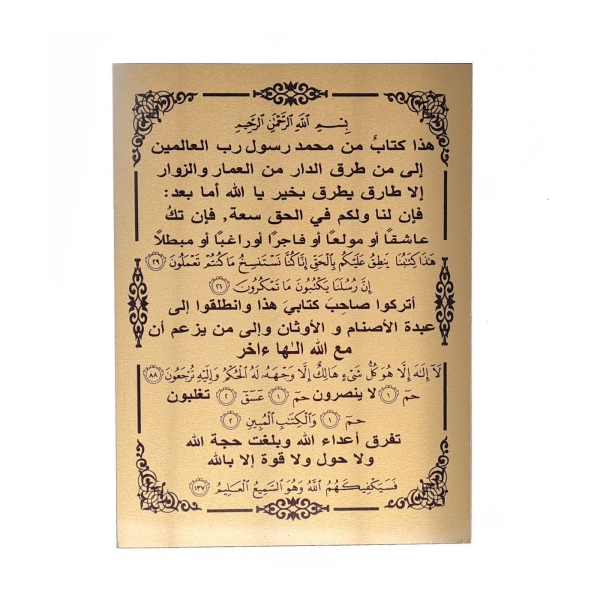 بِسْمِ اللَّهِ الرَّحْمَٰنِ الرَّحِيمِ
هذا كتابٌ من محمد رسول رب العالمين
إلى من طرق الدار من العمار والزوار
إلا طارق يطرق بخير يا الله أما بعد:
فإن لنا ولكم في الحق سعة, فإن تكُ
عاشقاً أو مولعاً أو فاجرًا أوراغباً أو مبطلاً
هَٰذَا كِتَٰبُنَا يَنطِقُ عَلَيْكُم بِالْحَقِّ إِنَّا كُنَّا نَسْتَنسِخُ مَا كُنتُمْ تَعْمَلُونَ ٢٩
إِنَّ رُسُلَنَا يَكْتُبُونَ مَا تَمْكُرُونَ ٢١
أتركوا صاحِبَ كتابيَ هذا وانطلقوا إلى
عبدة الأصنام و الأوثان وإلى من يزعم أن
مع الله الـٰها ءاخر
لَا إِلَٰهَ إِلَّا هُوَ كُلُّ شَيْءٍ هَالِكٌ إِلَّا وَجْهَهُ لَهُ الْحُكْمُ وَإِلَيْهِ تُرْجَعُونَ ٨٨
حمٓ ١ لا ينصرون حمٓ ١ عٓسٓقٓ ٢ تغلبون
حمٓ ١ وَالْكِتَٰبِ الْمُبِينِ ٢
تفرق أعداء الله وبلغت حجة الله
ولا حول ولا قوة إلا بالله
فَسَيَكْفِيكَهُمُ اللَّهُ وَهُوَ السَّمِيعُ الْعَلِيمُ ١٣٧